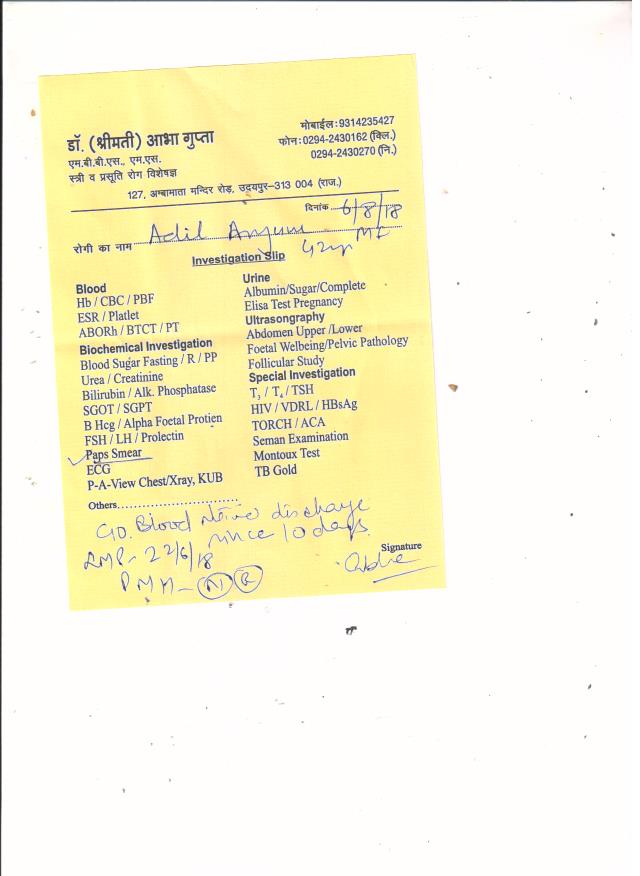 डॉ. (श्रीमती) आभा गुप्ता
एम.बी.बी.एस., एम.एस.
स्त्री व प्रसूति रोग विशेषज्ञ
मोबाईल:9314235427
फोन:0294-2430162 (क्लि.)
0294-2430270 (नि.)
127, अम्बामाता मन्दिर रोड़, उदयपुर-313 004 (राज.)
दिनांक 6/8/18
रोगी का नाम Adil Anjum
42yr
Investigation Slip
Blood
Hb / CBC / PBF
ESR / Platlet
ABORh / BTCT / PT
Biochemical Investigation
Blood Sugar Fasting / R / PP
Urea / Creatinine
Bilirubin / Alk. Phosphatase
SGOT / SGPT
B Hcg / Alpha Foetal Protien
FSH / LH / Prolectin
Paps Smear
ECG
P-A-View Chest/Xray, KUB
Urine
Albumin/Sugar/Complete
Elisa Test Pregnancy
Ultrasongraphy
Abdomen Upper /Lower
Foetal Welbeing/Pelvic Pathology
Follicular Study
Special Investigation
T3 / T4 / TSH
HIV / VDRL / HBsAg
TORCH / ACA
Seman Examination
Montoux Test
TB Gold
Others............................
Blood discharge
since 10 days
LMP - 22/6/18
PMH -
Signature